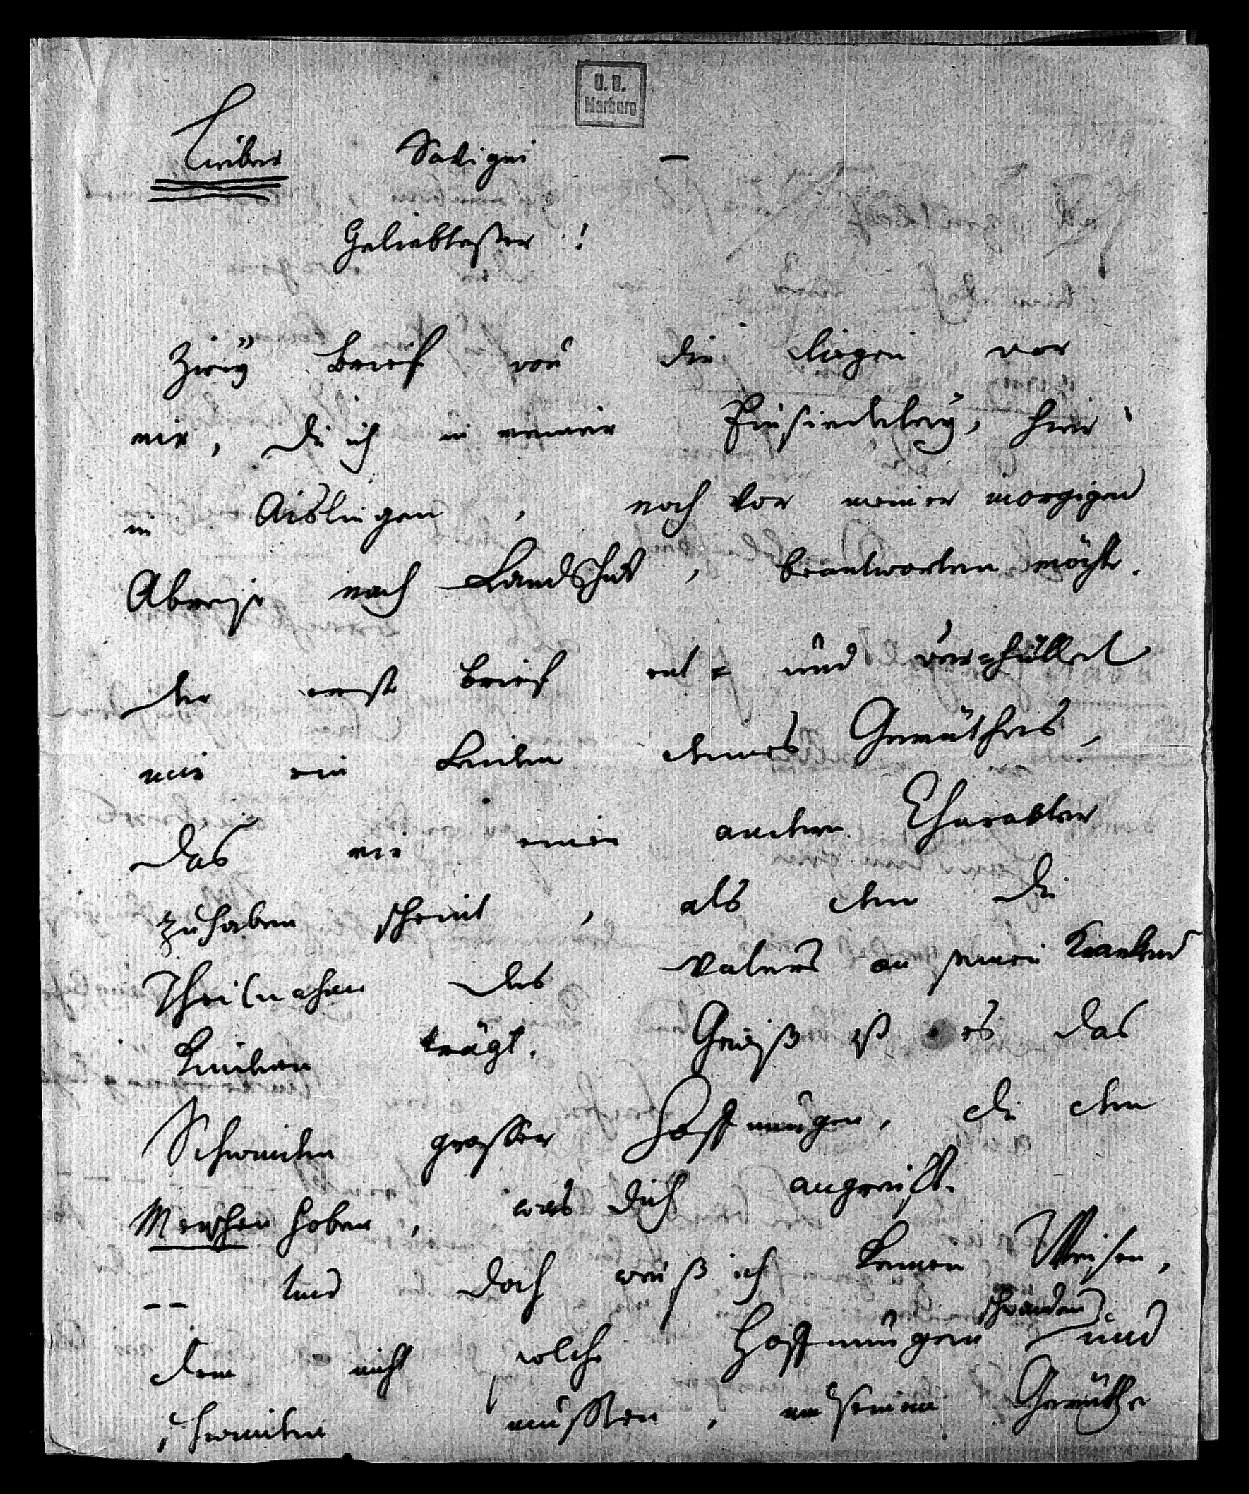 U. B.
Marburg
Lieber Savigni —
Geliebtester!
Zwey Briefe von dir liegen vor
mir, die ich in meiner Einsiedeley, hier
in Aislingen, noch vor meiner morgigen
Abreise nach Landshut, beantworten möchte.
Der erste Brief ent= und verhüllet
mir ein Leiden deines Gemüthes,
das mir einen andern Charakter
zu haben scheint, als den die
Theilnahme des Vaters an seinen kranken
Kindern trägt. Gewiß ist es das
Schwinden grosser Hoffnungen, die den
Menschen hoben, was dich angreift.
-- Und doch weiß ich keinen Weisen,
dem nicht solche Hoffnungen schwanden und
schwinden mußten, um seinem Gemüthe